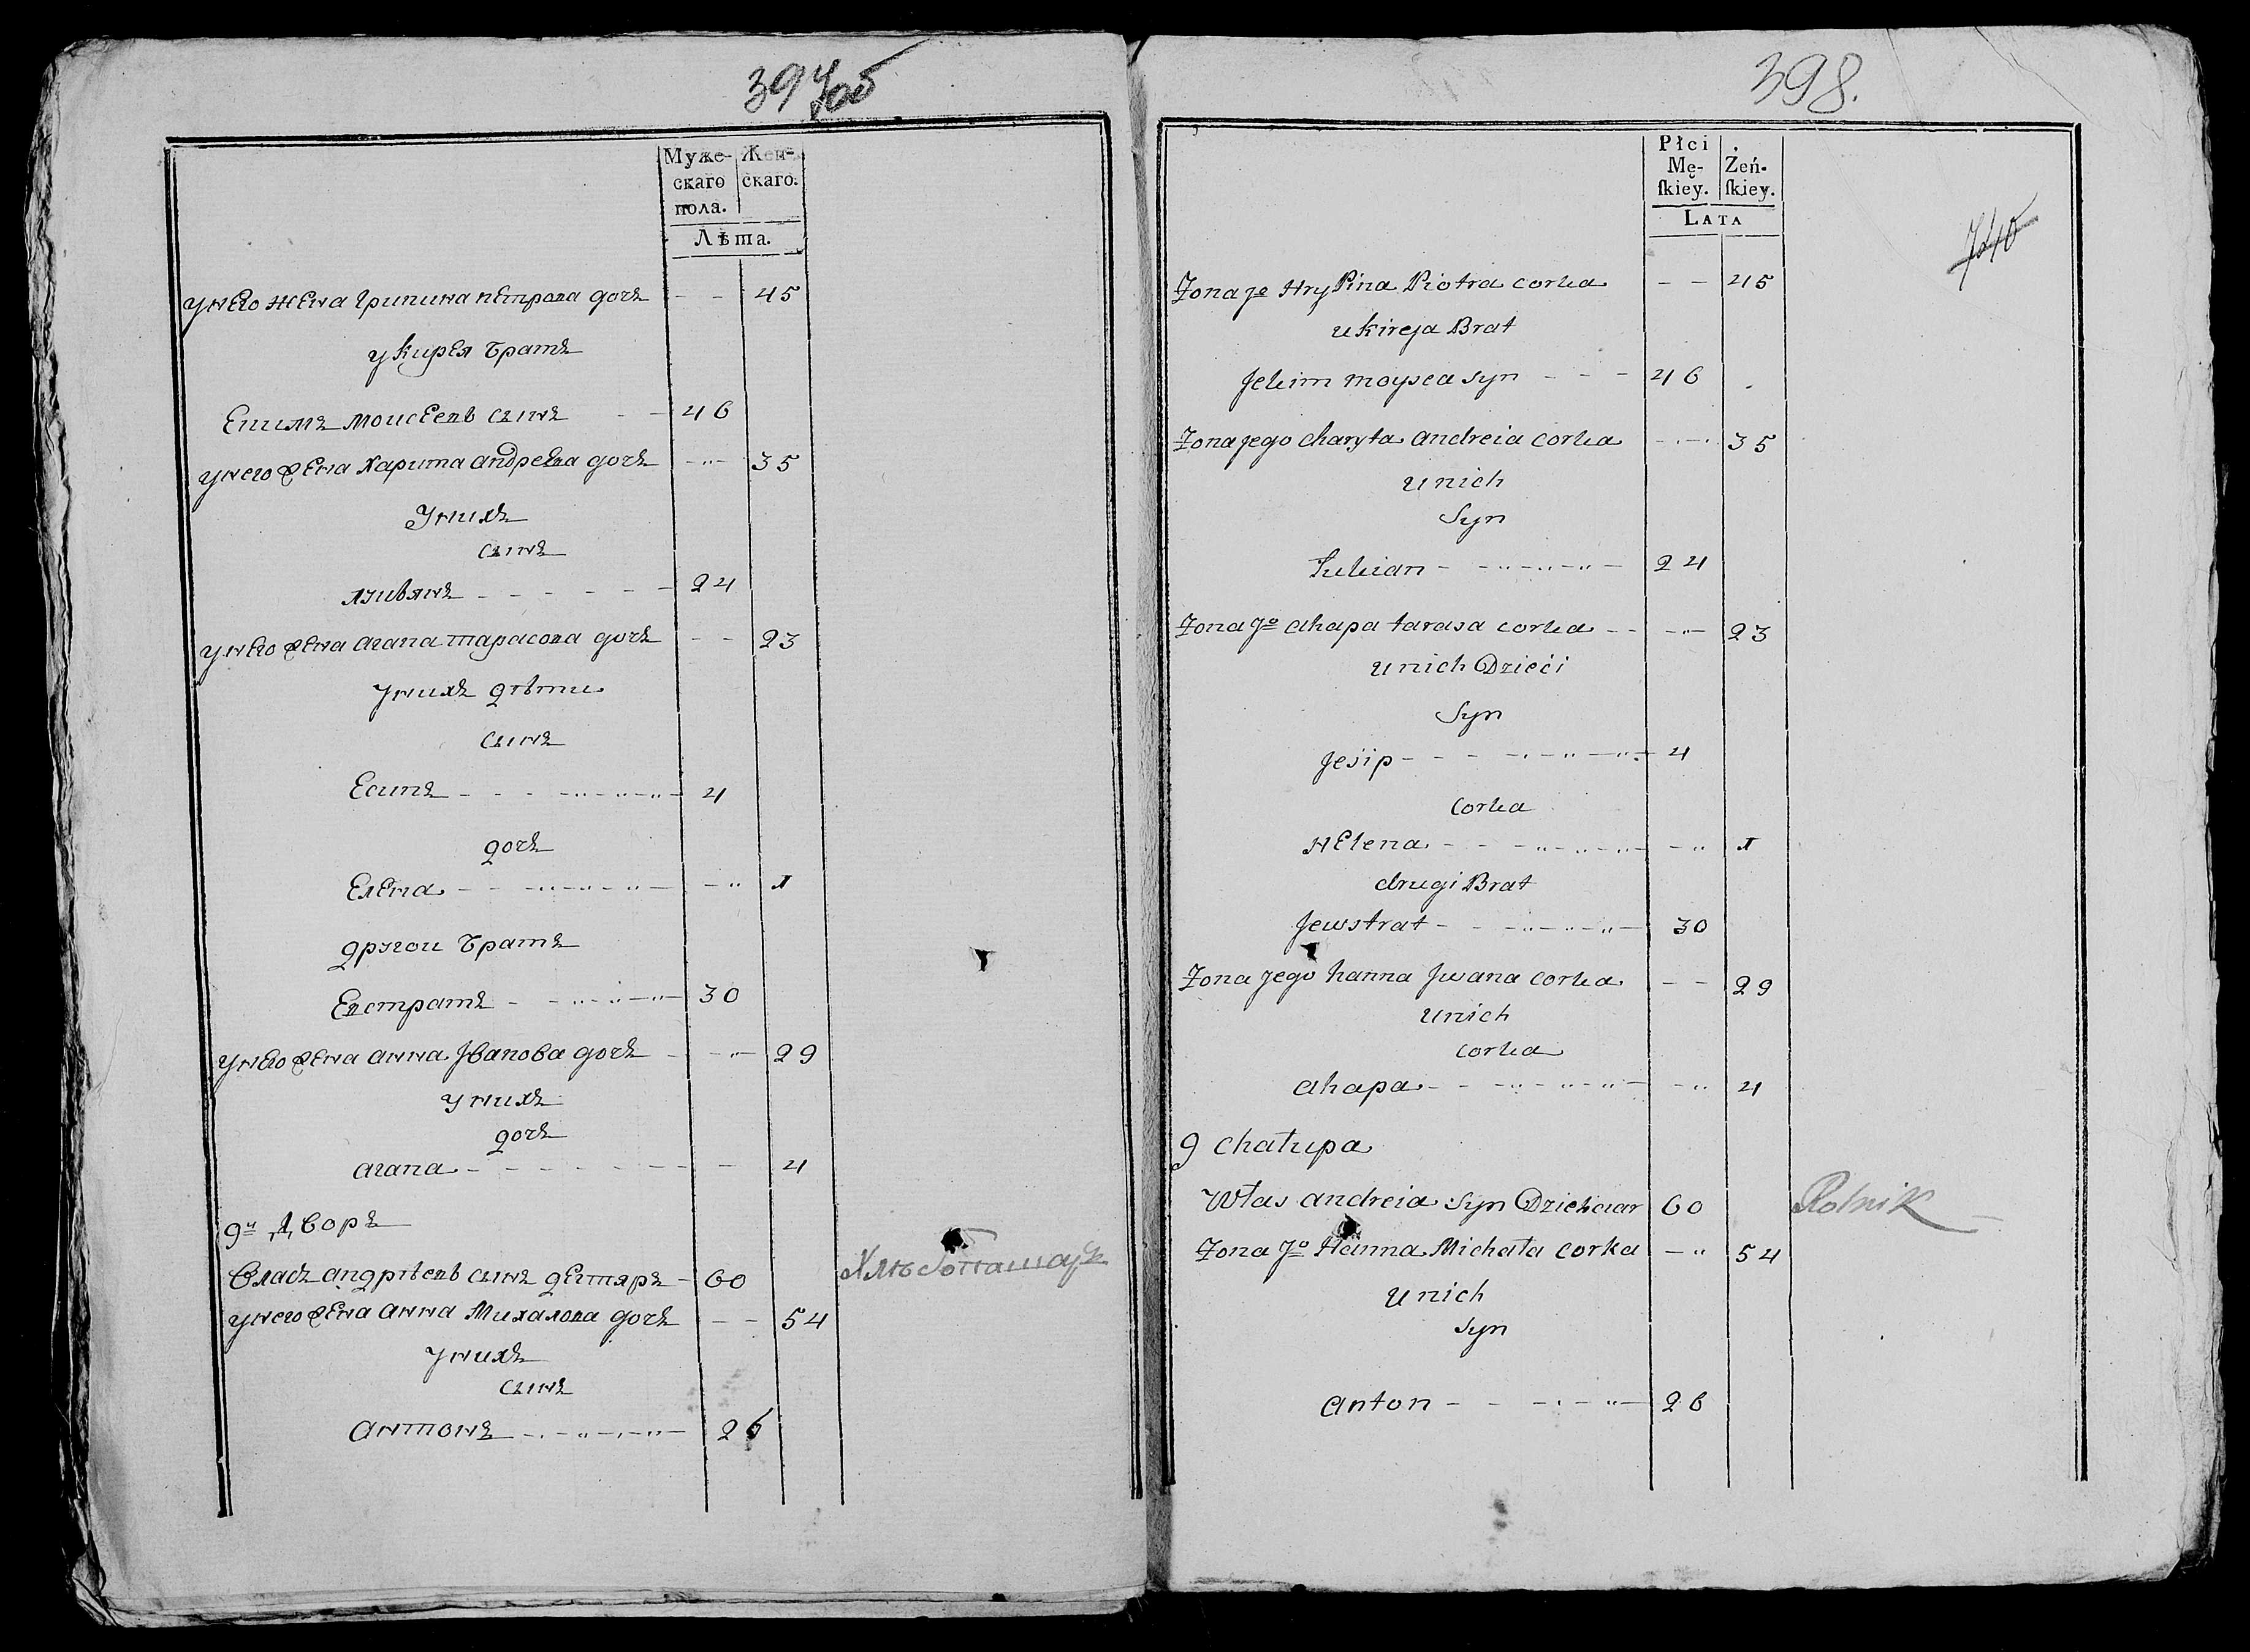 397
Муже-
скаго
пола.
Жен-
скаго.
Лѣта.
у него жена Грипина петрова дочъ - - 45
у Кирея братъ
Екимъ моисеевъ сынъ - - 46
у него жена Харита андреева дочъ - - 35
У нихъ
сынъ
лукянъ - - - - - - 24
у него жена агапа тарасова дочъ - - 23
У нихъ дѣти
сынъ
Есипъ - - - - - - 4
дочъ
Елена - - - - - - 1
другои братъ
Евстратъ - - - - - 30
у него жена анна Иванова дочъ - - 29
у нихъ
дочъ
агапа - - - - - - - 4
9й Дворъ
Власъ андрѣевъ сынъ дегтяръ - 60
у него жена анна Михалова дочъ - - 54
у нихъ
сынъ
антонъ - - - - - 26
398.
Płci
Mę-
ſkiey.
Żeń-
ſkiey.
LATA
Zona Jo HryPina Piotra corka - - 45
u kireja Brat
Jekim moysea syn - - - 46
Zona jego charyta andreia corka - - 35
u nich
Syn
Lukian - - - - - 24
Zona Jo ahapa tarasa corka - - - 23
u nich Dzieći
Syn
Jesip - - - - - - 4
corka
HElena - - - - - - 1
drugi Brat
Jewstrat - - - - - 30
Zona jego hanna Jwana corka - - 29
u nich
corka
ahapa - - - - - - 4
9 chałupa
Włas andreia syn Dziehciar 60 Rolnik
Zona Jo Hanna Michała corka - - 54
u nich
syn
anton - - - - - 26